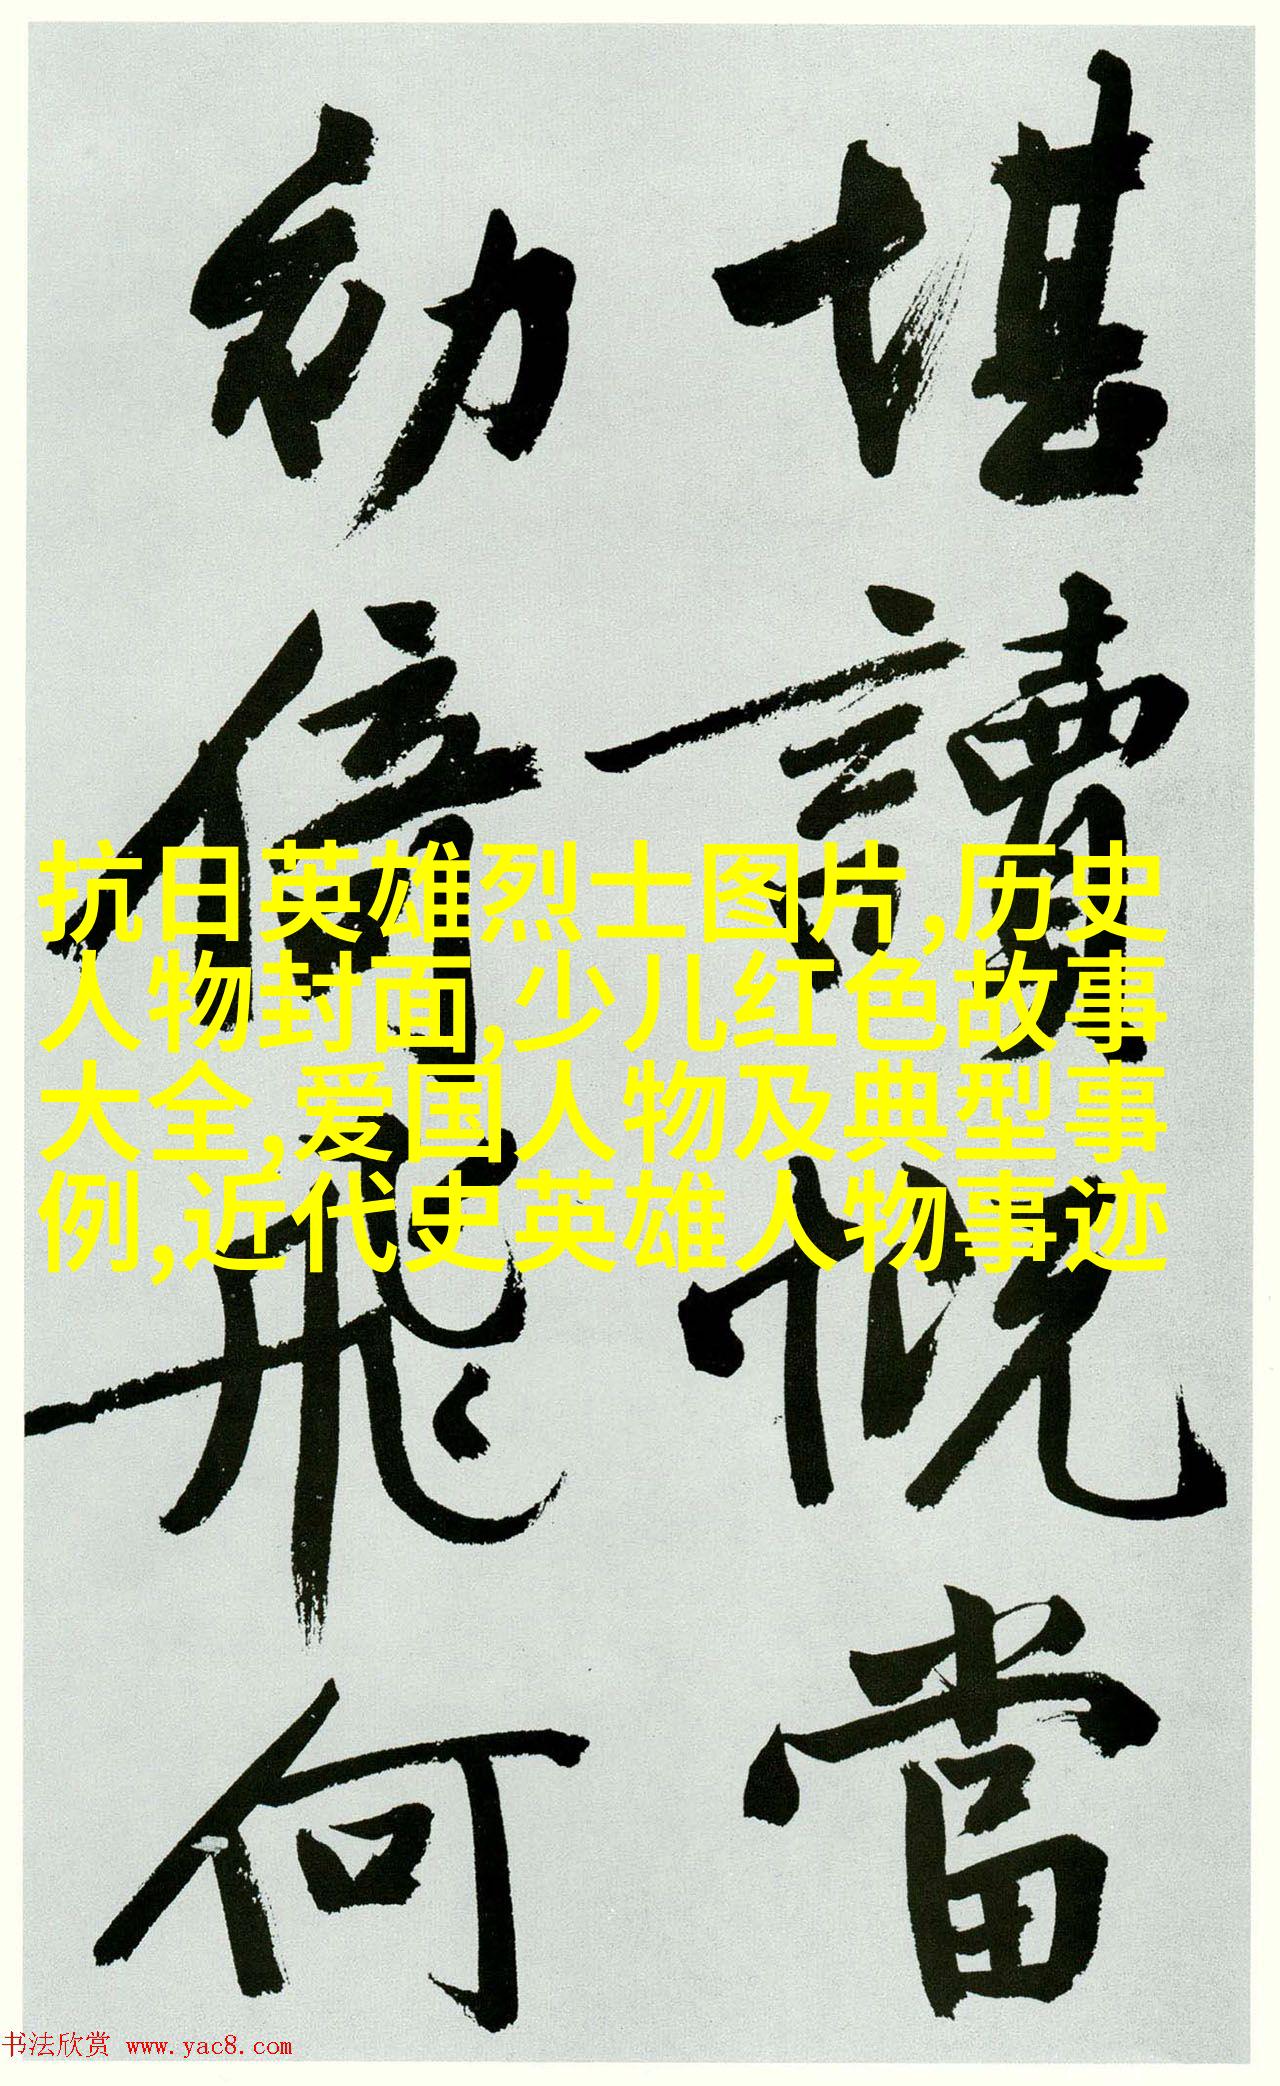 堪讀慨當
初倚飛何
抗日英雄烈士图片,历史
人物封面,少儿红色故事
大全,爱国人物及典型事
例,近代史英雄人物事迹
书法欣赏 www.yac8.com